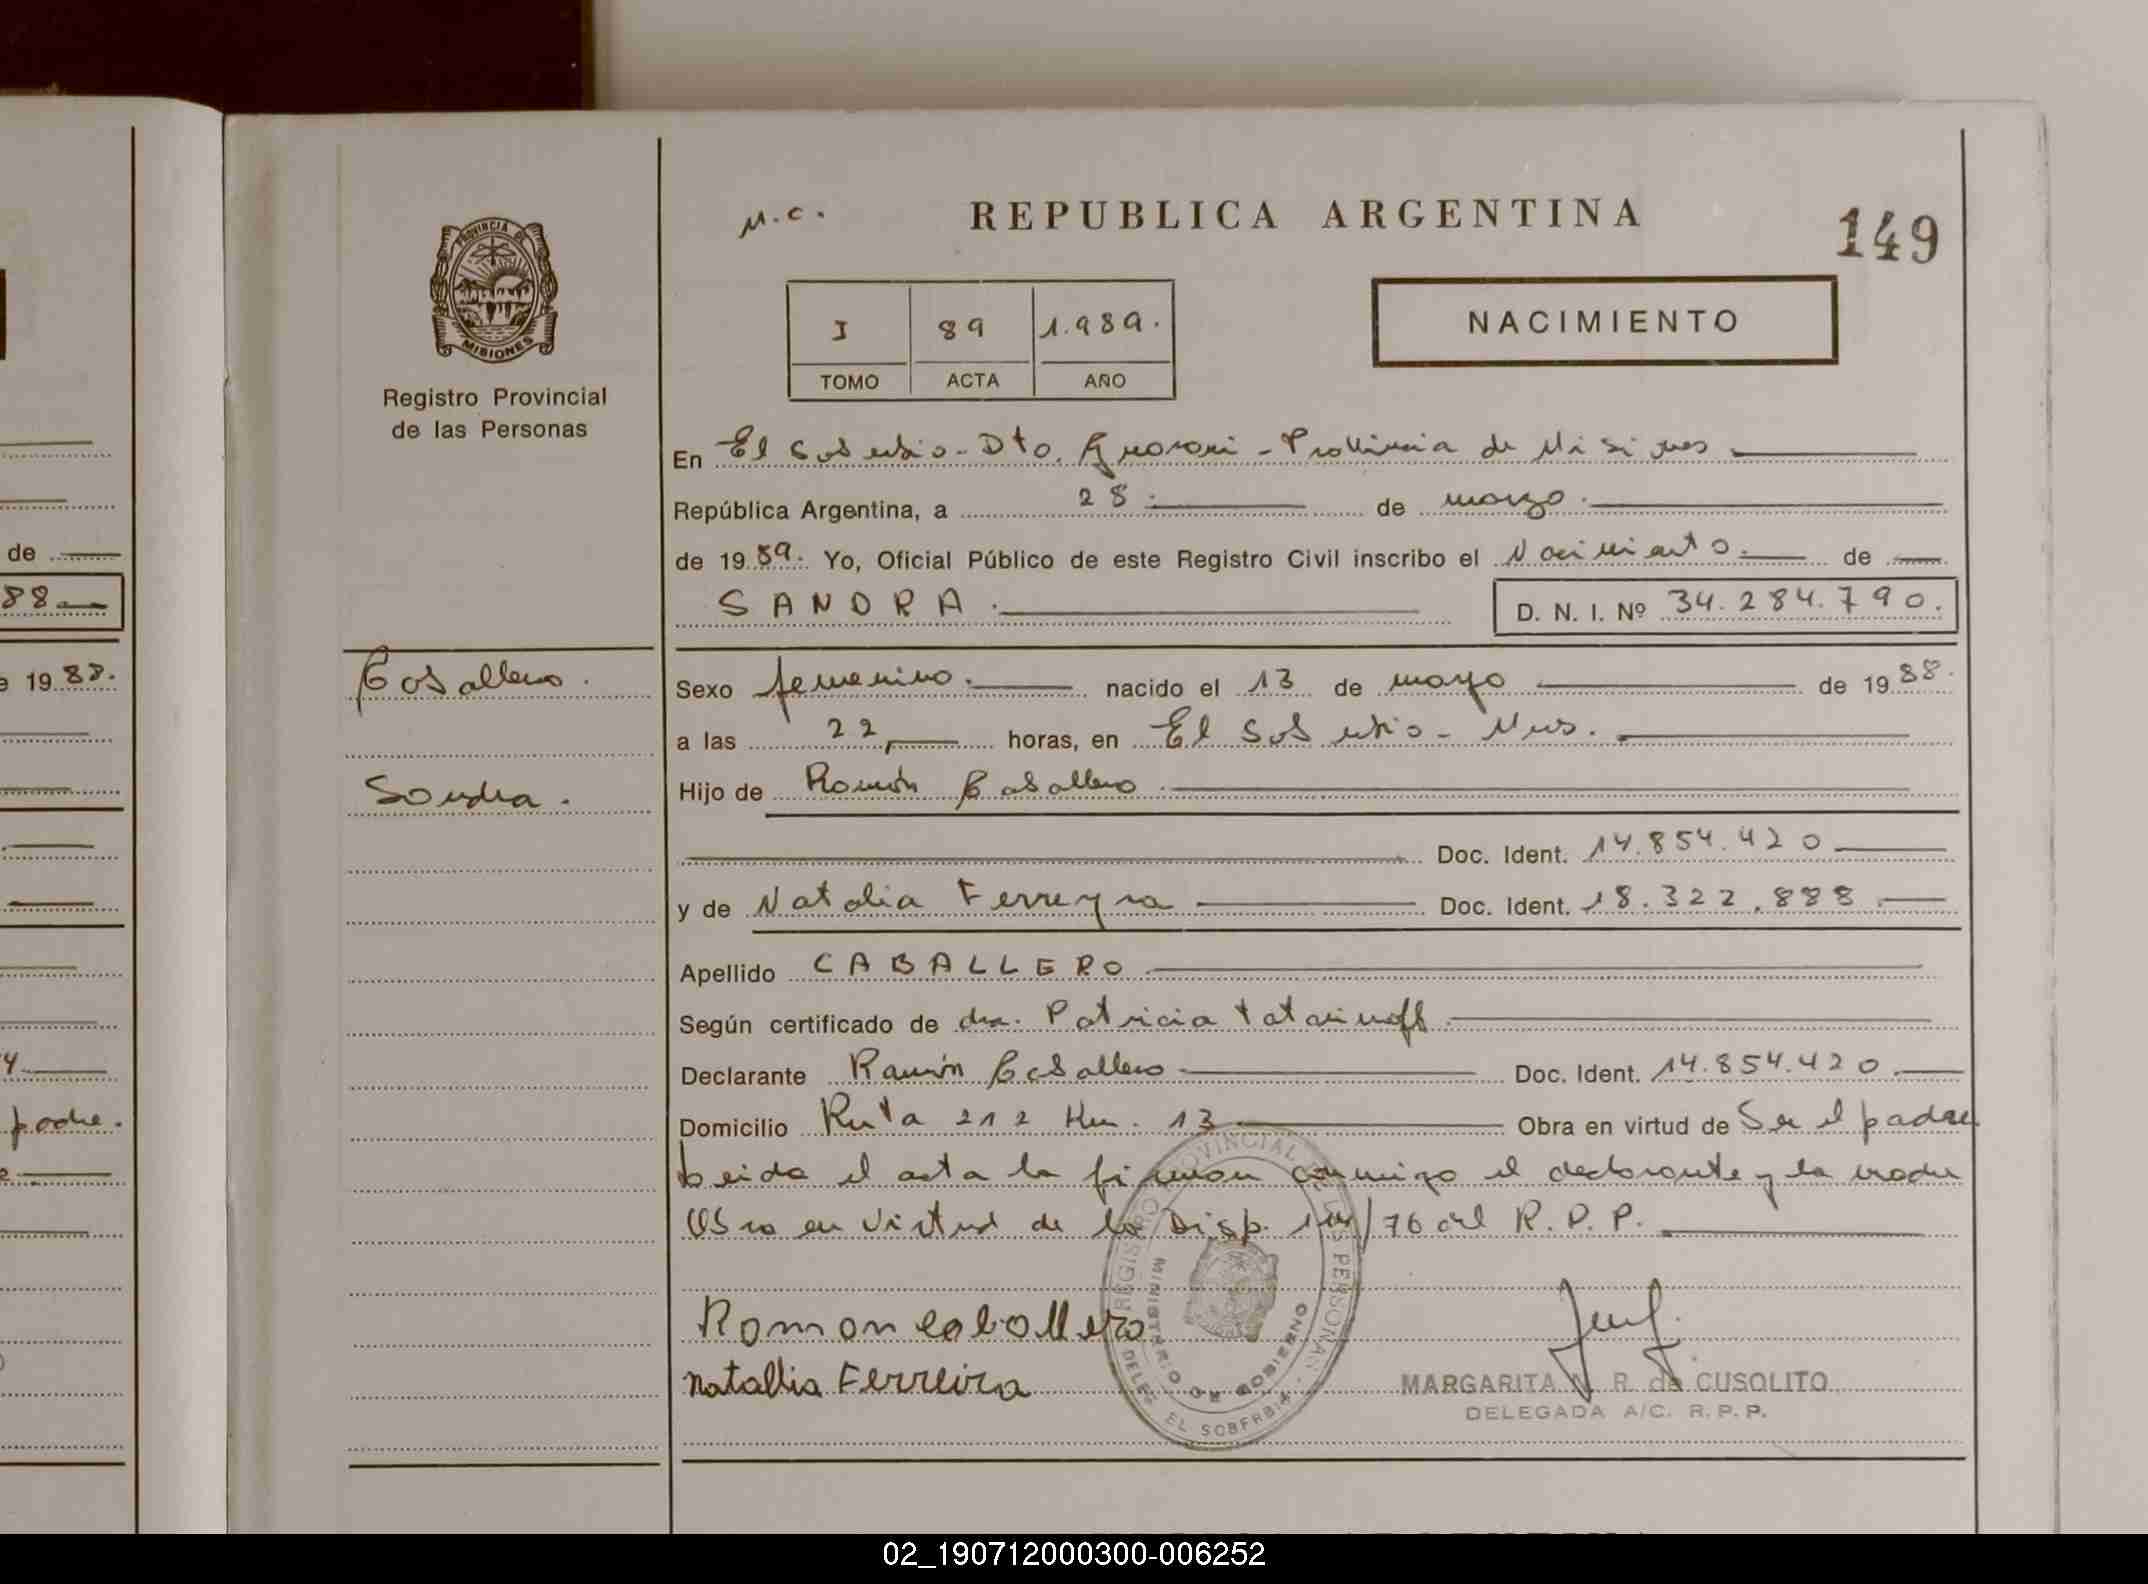 de
88
e 19 88.
4
padre.
e
PROVINCIA DE
MISIONES
Registro Provincial
de las Personas
Caballero.
Sandra.
M.C.
REPUBLICA ARGENTINA
149
I 89 1.989.
TOMO ACTA AÑO
NACIMIENTO
En El Soberbio - Dto. Guaraní - Provincia de Misiones
República Argentina, a 28. de marzo.
de 19 89. Yo, Oficial Público de este Registro Civil inscribo el Nacimiento. de
SANDRA. D. N. I. Nº 34.284.790.
Sexo femenino. nacido el 13 de mayo de 19 88.
a las 22, horas, en El Soberbio - Mnes.
Hijo de Ramón Caballero.
Doc. Ident. 14.854.420
y de Natalia Ferreyra Doc. Ident. 18.322.888.
Apellido CABALLERO
Según certificado de dra. Patricia Tatarinoff.
Declarante Ramón Caballero Doc. Ident. 14.854.420.
Domicilio Ruta 212 Km. 13 Obra en virtud de Ser el padre
Leida el acta la firman conmigo el declarante y la madre
Obra en virtud de la Disp. /76 del R.P.P.
Ramon caballero
natallia Ferreira
REGISTRO PROVINCIAL DE LAS PERSONAS
MINISTERIO DE GOBIERNO
DELEG. EL SOBERBIO
MARGARITA N. R. de CUSOLITO
DELEGADA A/C. R.P.P.
02_190712000300-006252